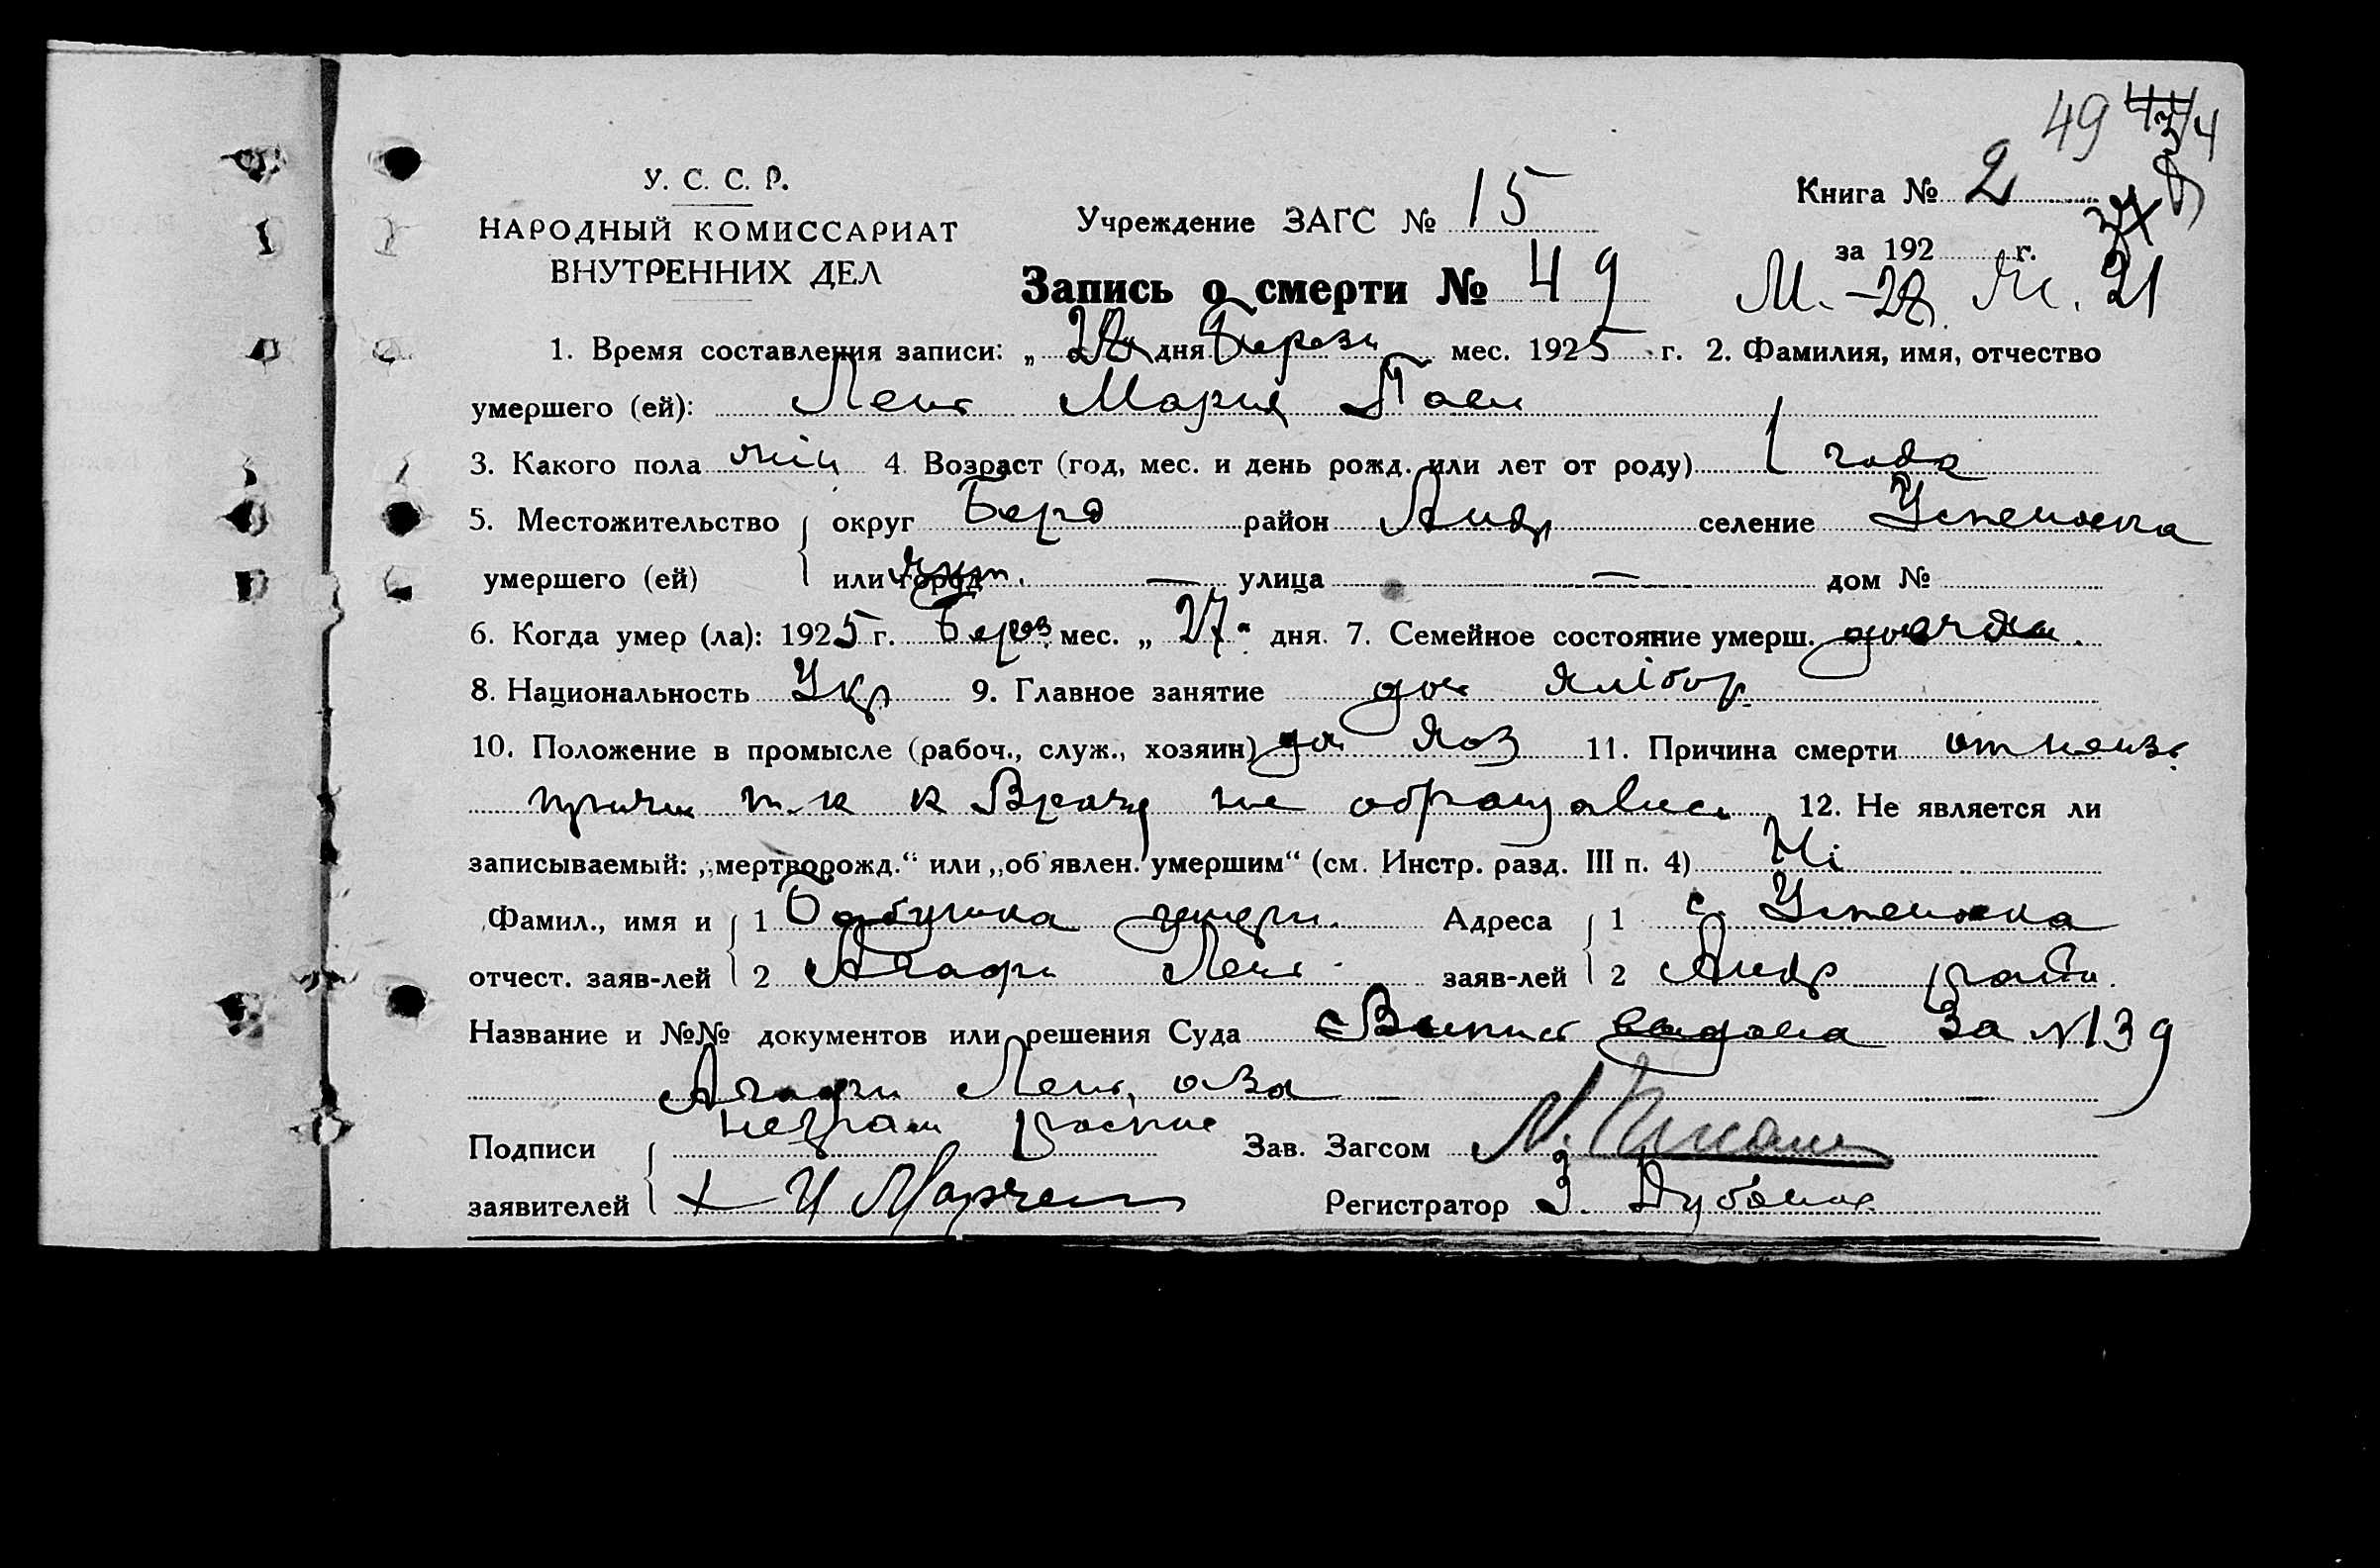 49 4
У. С. С. Р.
НАРОДНЫЙ КОМИССАРИАТ
ВНУТРЕННИХ ДЕЛ
Учреждение ЗАГС № 15
Книга № 2
за 192 г.
Запись о смерти № 49
М. - 28 Ж. 21
1. Время составления записи: „ 28 " дня Березн мес. 1925 г. 2. Фамилия, имя, отчество
умершего (ей): Мария
3. Какого пола жін 4. Возраст (год, мес. и день рожд. или лет от роду) 1 года
5. Местожительство округ Берд район Андр селение Успеновка
умершего (ей) или город — улица — дом №
6. Когда умер (ла): 1925 г. Берез мес. „ 27 " дня. 7. Семейное состояние умерш.
8. Национальность Укр 9. Главное занятие хлібор
10. Положение в промысле (рабоч., служ., хозяин) хоз 11. Причина смерти от неизв
причин т. к к Врачу не обращались 12. Не является ли
записываемый: „мертворожд.“ или „об'явлен. умершим“ (см. Инстр. разд. III п. 4) Ні
Фамил., имя и 1 Бабушка умерш. Адреса 1 с. Успеновка
отчест. заяв-лей 2 Агафи заяв-лей 2 Андр райо
Название и №№ документов или решения Суда Выпись выдана За № 139
Агафи
неграм роспис
Подписи Зав. Загсом
заявителей + И Марченко Регистратор